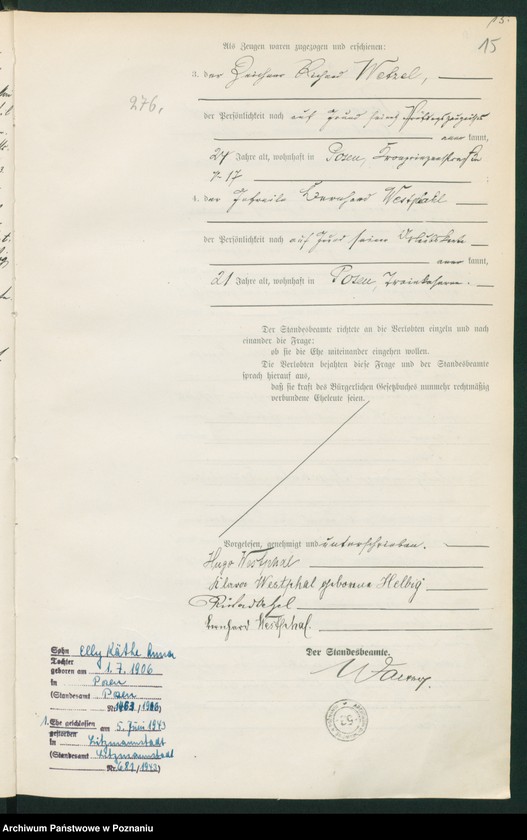 15.
15
Als Zeugen waren zugezogen und erschienen:
3. der Zeichner Richard Wetzel,
276.
der Persönlichkeit nach auf Grund seines
kannt,
24 Jahre alt, wohnhaft in Posen, Kronprinzenstraße
4. der Bernhard Westphal
der Persönlichkeit nach auf Grund seiner
kannt,
21 Jahre alt, wohnhaft in Posen, Trainkaserne.
Der Standesbeamte richtete an die Verlobten einzeln und nach
einander die Frage:
ob sie die Ehe miteinander eingehen wollen.
Die Verlobten bejahten diese Frage und der Standesbeamte
sprach hierauf aus,
daß sie kraft des Bürgerlichen Gesetzbuches nunmehr rechtmäßig
verbundene Eheleute seien.
Vorgelesen, genehmigt und unterschrieben.
Hugo Westphal
Klara Westphal geborene Helbig
Richard Wetzel
Bernhard Westphal.
Der Standesbeamte.
Sohn Elly Käthe
Tochter
geboren am 1.7.1906
in Posen
(Standesamt Posen
Nr. 1463/1906)
1. Ehe geschlossen am 5. Juni 1943
gestorben
in Litzmannstadt
(Standesamt Litzmannstadt
Nr. 681/1943)
Archiwum Państwowe w Poznaniu